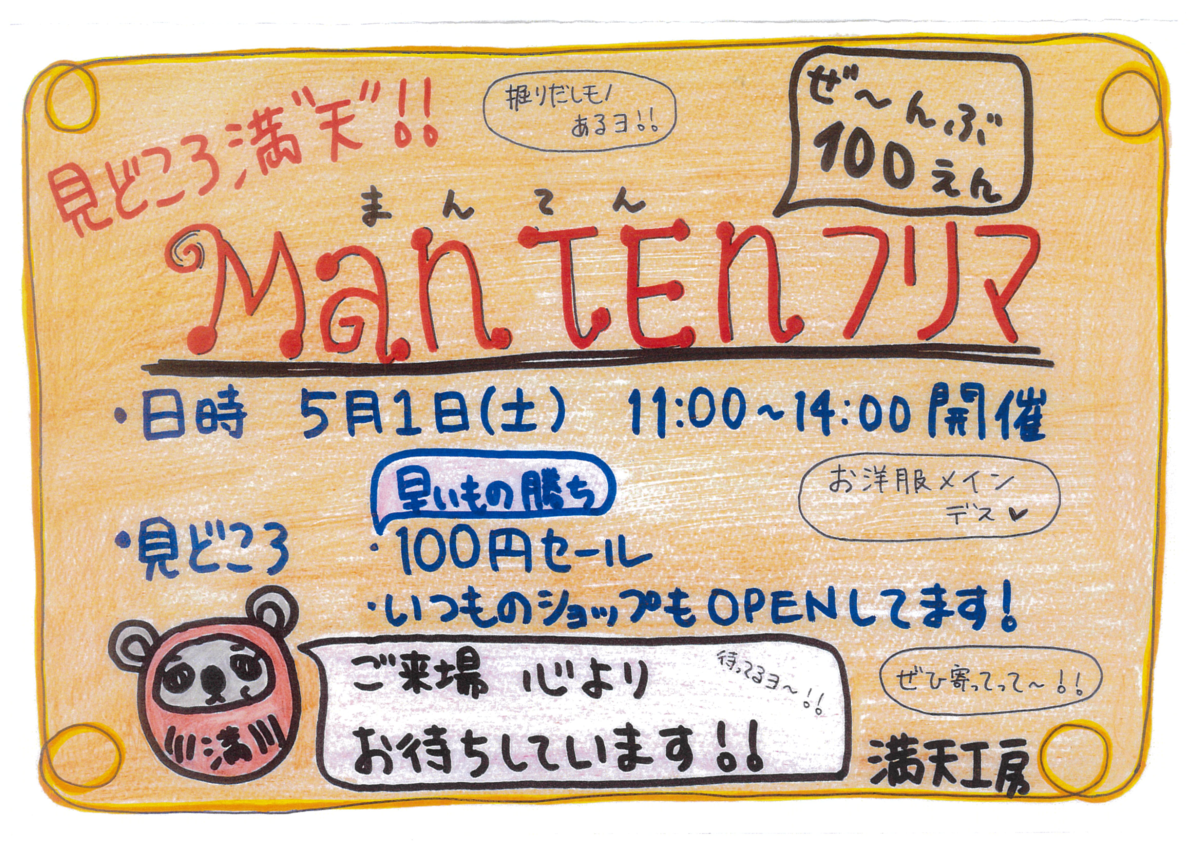 見どころ満"天"!!
掘りだしモノ
あるヨ!!
ぜ〜んぶ
100えん
まんてん
ManTENフリマ
・日時 5月1日(土) 11:00〜14:00開催
早いもの勝ち
お洋服メイン
デス♥
・見どころ ・100円セール
・いつものショップもOPENしてます!
ご来場 心より
お待ちしています!!
待ってるヨ〜!!
ぜひ寄ってって〜!!
満
満天工房